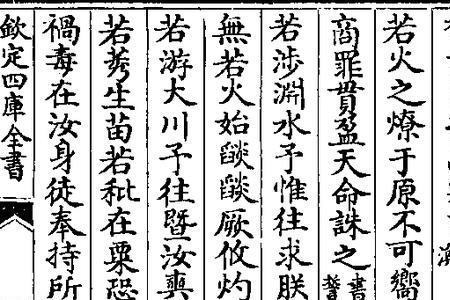 若火之燎于原不可嚮
商罪貫盈天命誅之書誓
若涉淵水予惟往求朕
無若火始燄燄厥攸灼
若游大川予往暨汝奭
若莠生苗若秕在粟恐
禍毒在汝身徒奉持所
欽定四庫全書